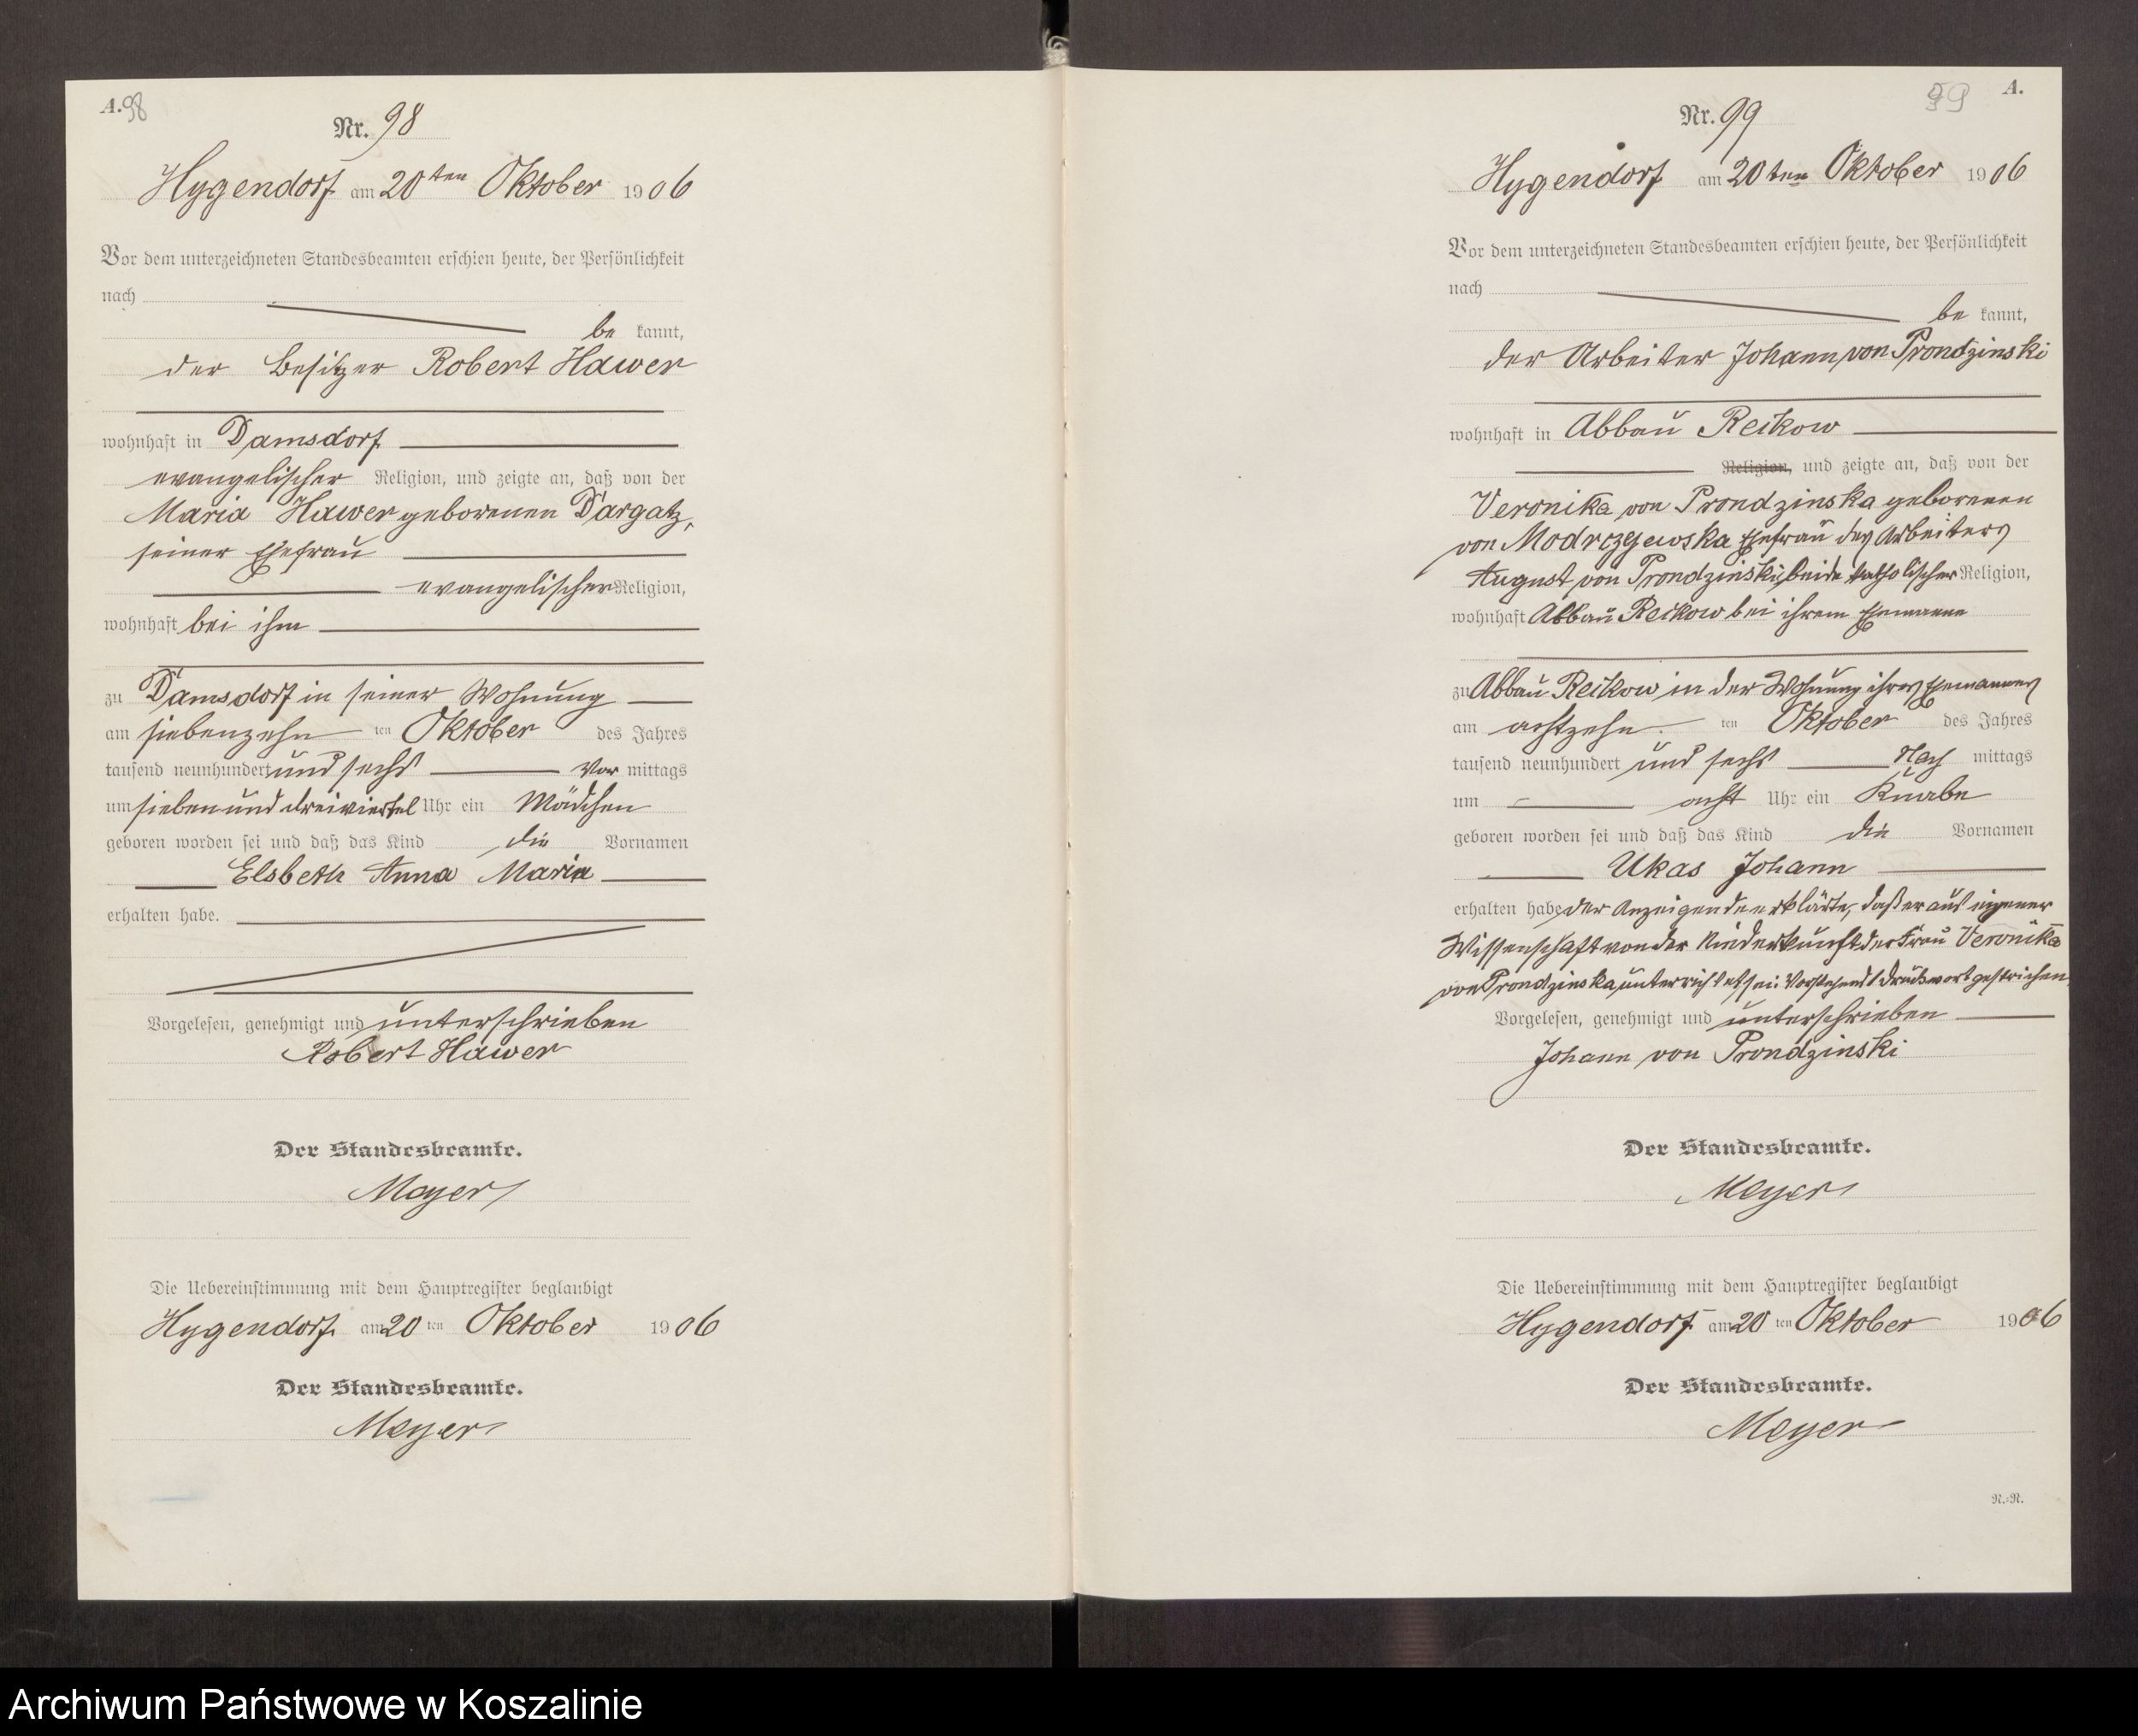 A. 98
Nr. 98
Hygendorf am 20ten Oktober 1906
Vor dem unterzeichneten Standesbeamten erschien heute, der Persönlichkeit
nach
be kannt,
der Besitzer Robert Hawer
wohnhaft in Damsdorf
evangelischer Religion, und zeigte an, daß von der
Maria Hawer geborenen Dargatz,
seiner Ehefrau
evangelischer Religion,
wohnhaft bei ihm
zu Damsdorf in seiner Wohnung
am siebenzehn ten Oktober des Jahres
tausend neunhundert und sechs Vor mittags
um sieben und dreiviertel Uhr ein Mädchen
geboren worden sei und daß das Kind die Vornamen
Elsbeth Anna Maria
erhalten habe.
Vorgelesen, genehmigt und unterschrieben
Robert Hawer
Der Standesbeamte.
Meyer
Die Uebereinstimmung mit dem Hauptregister beglaubigt
Hygendorf am 20 ten Oktober 1906
Der Standesbeamte.
Meyer
99 A.
Nr. 99
Hygendorf am 20ten Oktober 1906
Vor dem unterzeichneten Standesbeamten erschien heute, der Persönlichkeit
nach
be kannt,
der Arbeiter Johann von Prondzinski
wohnhaft in Abbau Reikow
Religion, und zeigte an, daß von der
Veronika von Prondzinska geborenen
von Modrczejewska Ehefrau des Arbeiters
August von Prondzinski, beide katholischer Religion,
wohnhaft Abbau Reikow bei ihrem Ehemanne
zu Abbau Reikow in der Wohnung ihres Ehemannes
am achtzehn ten Oktober des Jahres
tausend neunhundert und sechs Nach mittags
um acht Uhr ein Knabe
geboren worden sei und daß das Kind die Vornamen
Ukas Johann
erhalten habe der Anzeigende erklärte, daß er aus eigener
Wissenschaft von der Niederkunft der Frau Veronika
von Prondzinska unterrichtet sei. Vorstehend 1 Druckwort gestrichen.
Vorgelesen, genehmigt und unterschrieben
Johann von Prondzinski
Der Standesbeamte.
Meyer
Die Uebereinstimmung mit dem Hauptregister beglaubigt
Hygendorf am 20 ten Oktober 1906
Der Standesbeamte.
Meyer
N.=N.
Archiwum Państwowe w Koszalinie